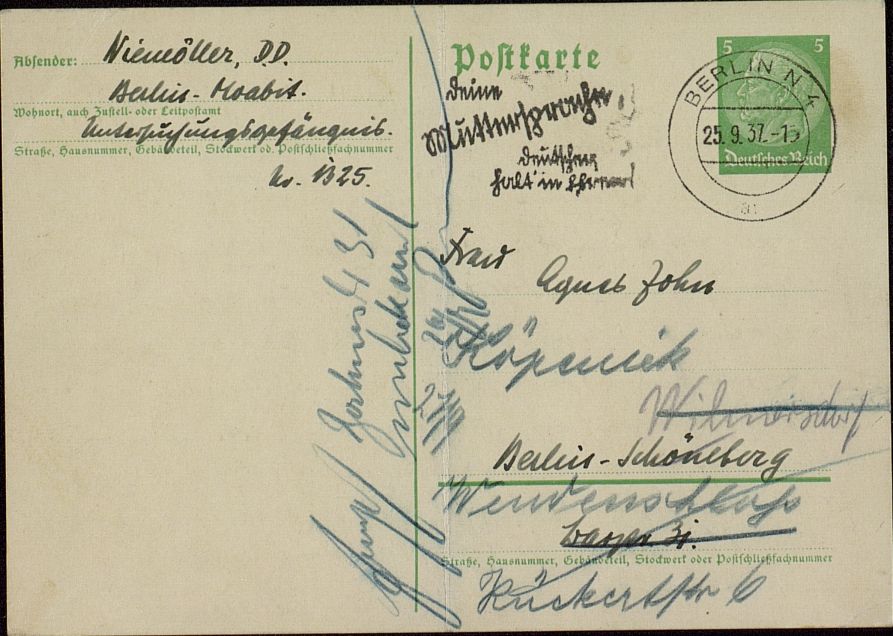 Absender: Niemöller, D.D.
Berlin-Moabit.
Wohnort, auch Zustell- oder Leitpostamt
Untersuchungsgefängnis.
Straße, Hausnummer, Gebäudeteil, Stockwerk od. Postschließfachnummer
No. 1325.
Postkarte
deine
Muttersprache,
Deutscher,
halt in Ehren!
5 5
Deutsches Reich
BERLIN N 4
25.9.37.-15
Frau
Agnes John
Köpenick
Wilmersdorf
Berlin-Schöneberg
Wendenschloss
31.
Straße, Hausnummer, Gebäudeteil, Stockwerk oder Postschließfachnummer
Rückertstr 6
31
unbekannt